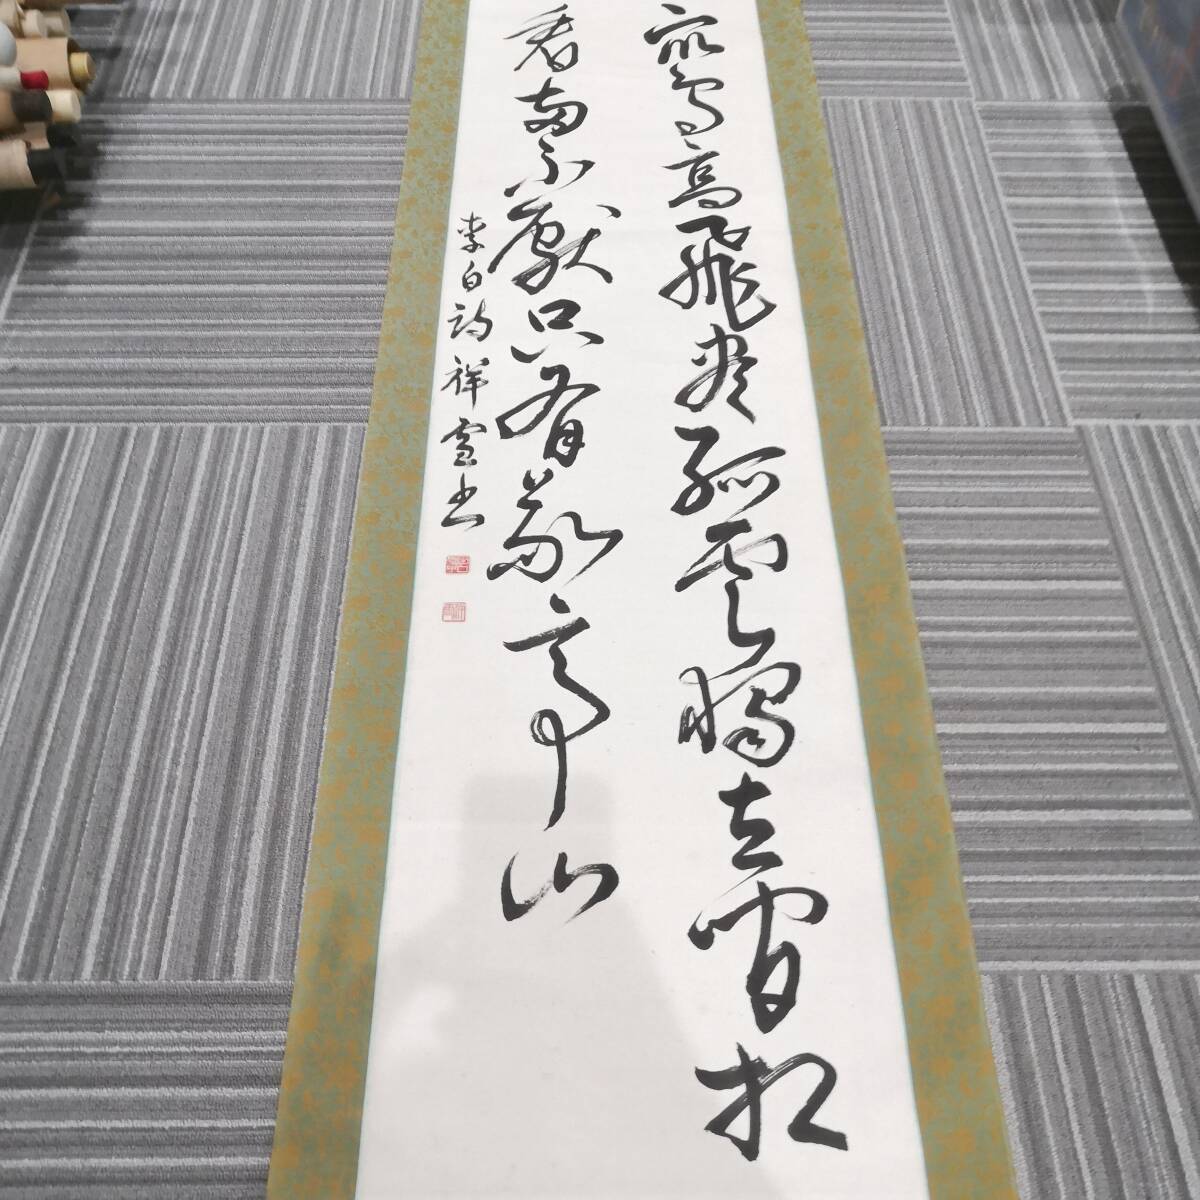 衆鳥高飛盡孤雲獨去閒相
看兩不厭只有敬亭山
李白詩 祥雪書